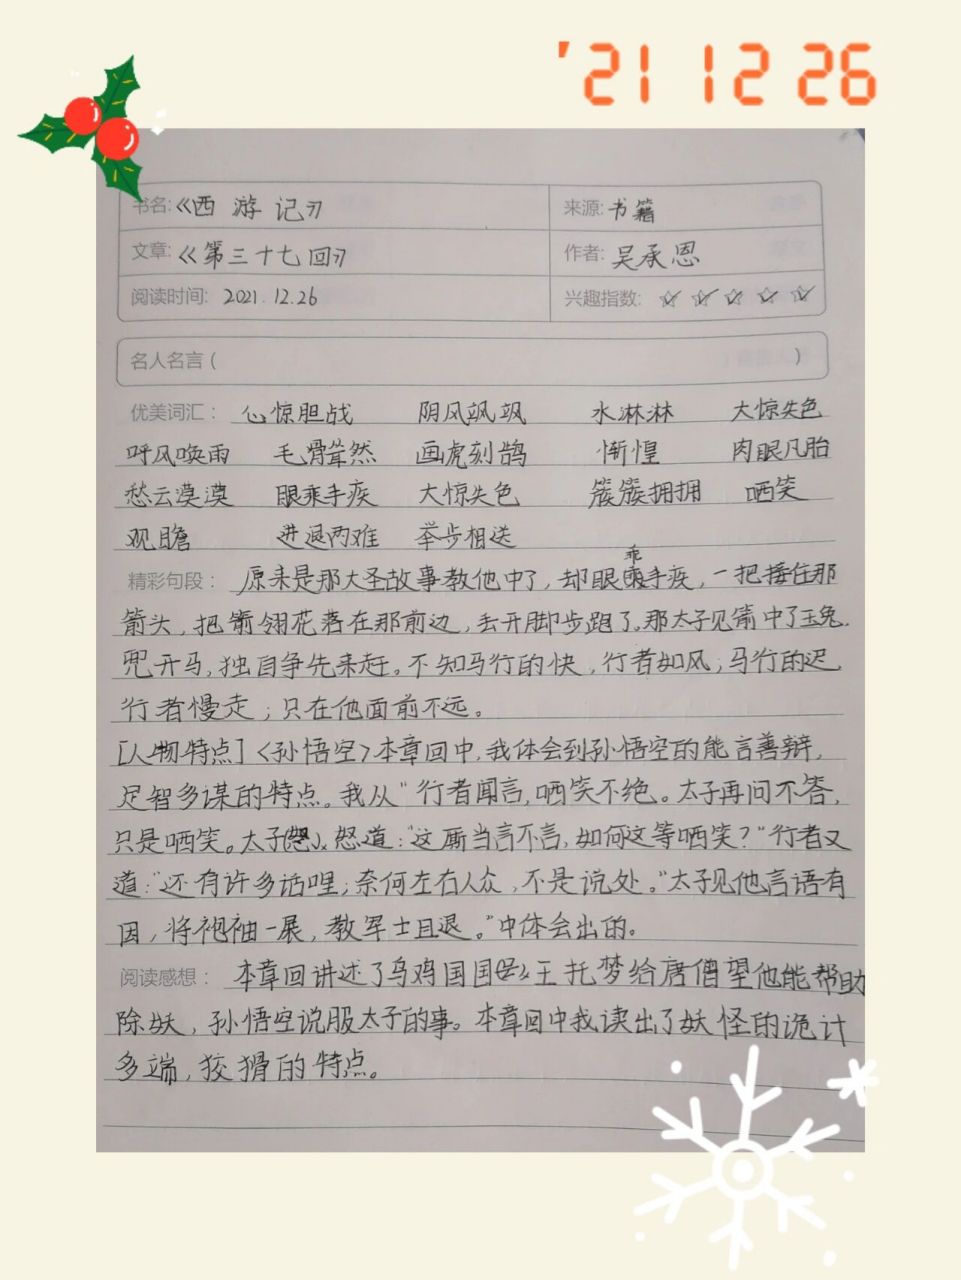 '21 12 26
书名:《西游记》 来源:书籍
文章:《第三十七回》 作者:吴承恩
阅读时间: 2021.12.26 兴趣指数: ☆☆☆☆☆
名人名言( )
优美词汇: 心惊胆战 阴风飒飒 水淋淋 大惊失色
呼风唤雨 毛骨耸然 画虎刻鹄 惭惶 肉眼凡胎
愁云漠漠 眼乘手疾 大惊失色 簇簇拥拥 哂笑
观瞻 进退两难 举步相送
精彩句段: 原来是那大圣故事教他中了,却眼乖手疾,一把接住那
箭头,把箭翎花落在那前边,丢开脚步跑了。那太子见箭中了玉兔,
兜开马,独自争先来赶。不知马行的快,行者如风;马行的迟,
行者慢走;只在他面前不远。
[人物特点]〈孙悟空〉本章回中,我体会到孙悟空的能言善辩,
足智多谋的特点。我从“行者闻言,哂笑不绝。太子再问不答,
只是哂笑。太子怒道:“这厮当言不言,如何这等哂笑?”行者又
道:“还有许多话哩;奈何左右人众,不是说处。”太子见他言语有
因,将袍袖一展,教军士且退。”中体会出的。
阅读感想: 本章回讲述了乌鸡国国王托梦给唐僧望他能帮助
除妖,孙悟空说服太子的事。本章回中我读出了妖怪的诡计
多端,狡猾的特点。